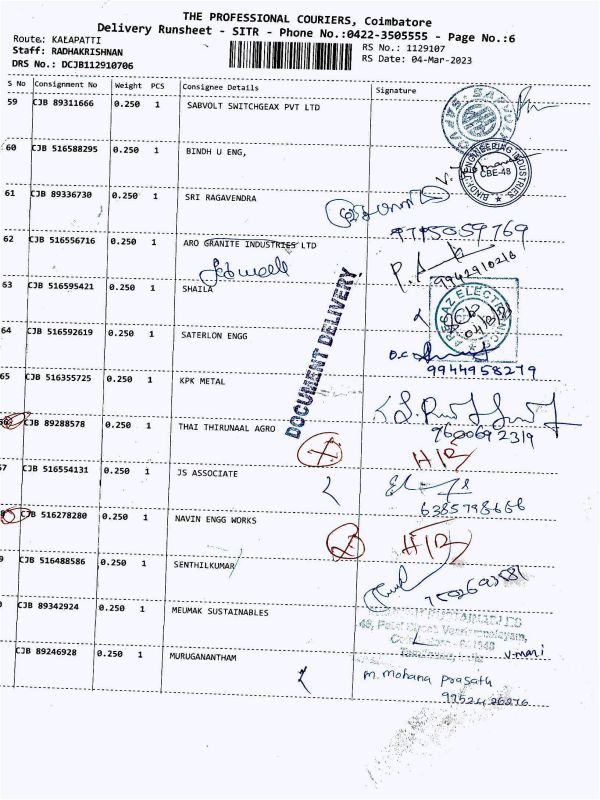 THE PROFESSIONAL COURIERS, Coimbatore
Delivery Runsheet - SITR - Phone No.:0422-3505555 - Page No.:6
Route: KALAPATTI
RS No.: 1129107
Staff: RADHAKRISHNAN
RS Date: 04-Mar-2023
DRS No.: DCJB112910706
S No Consignment No Weight PCS Consignee Details Signature
59 CJB 89311666 0.250 1 SABVOLT SWITCHGEAX PVT LTD
60 CJB 516588295 0.250 1 BINDH U ENG,
BINDHU ENGINEERING INDUSTRIES
CBE-48
61 CJB 89336730 0.250 1 SRI RAGAVENDRA
62 CJB 516556716 0.250 1 ARO GRANITE INDUSTRIES LTD
9942910216
63 CJB 516595421 0.250 1 SHAILA
DOCUMENT DELIVERY
64 CJB 516592619 0.250 1 SATERLON ENGG
9944958279
65 CJB 516355725 0.250 1 KPK METAL
9600692319
CJB 89288578 0.250 1 THAI THIRUNAAL AGRO
67 CJB 516554131 0.250 1 JS ASSOCIATE
6385798666
CJB 516278280 0.250 1 NAVIN ENGG WORKS
9 CJB 516488586 0.250 1 SENTHILKUMAR
CJB 89342924 0.250 1 MEUMAK SUSTAINABLES
V.mari
CJB 89246928 0.250 1 MURUGANANTHAM
m. mohana prasath